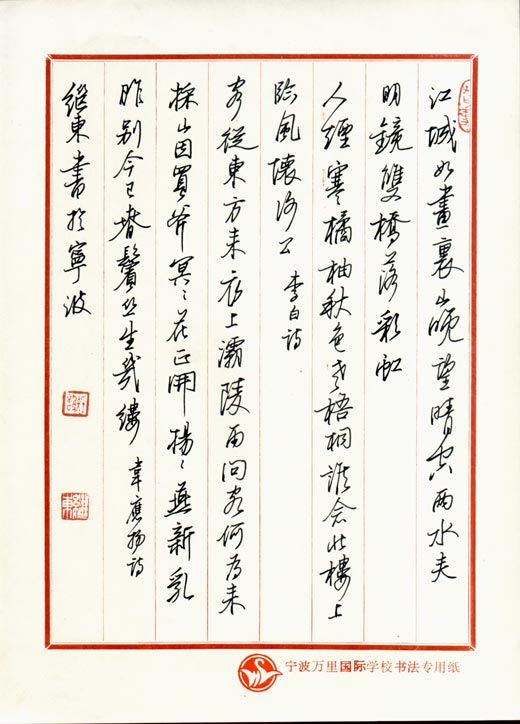 江城如畫裏山晚望晴空兩水夾
明鏡雙橋落彩虹
人煙寒橘柚秋色老梧桐誰念北樓上
臨風懷謝公 李白詩
客從東方來衣上灞陵雨問客何為來
採山因買斧冥〻花正開揚〻燕新乳
昨别今已春鬢絲生幾縷 韋應物詩
繼東書於寧波
宁波万里国际学校书法专用纸